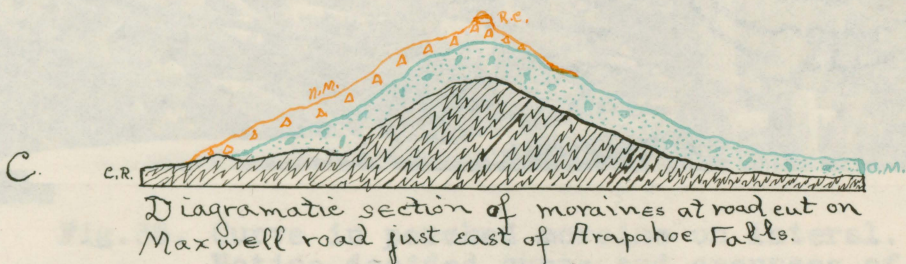 R.C.
n.M.
C.
C.R.
O.M.
Diagramatic section of moraines at road cut on
Maxwell road just east of Arapahoe Falls.